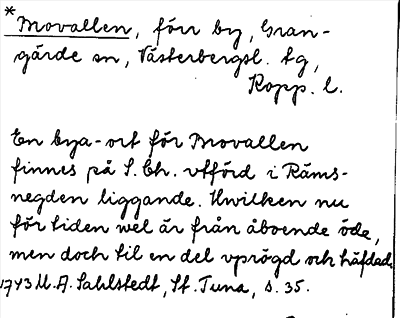 * Movallen, förr by, Gran-
gärde sn, Västerbergsl. tg,
Kopp. l.
En bya-ort för Movallen
finnes på S. Ch. vtförd i Räms-
negden liggande. Hwilken nu
för tiden wel är från åboende öde,
men doch til en del vprögd och häfdad.
1743 U. A. Sahlstedt, St. Tuna, s. 35.